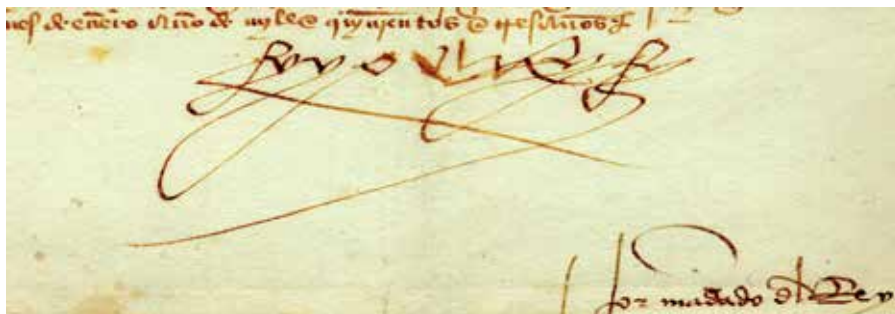 mes de enero año de myle e quynientos e tres años
yo el Rey
por mādado dl Rey